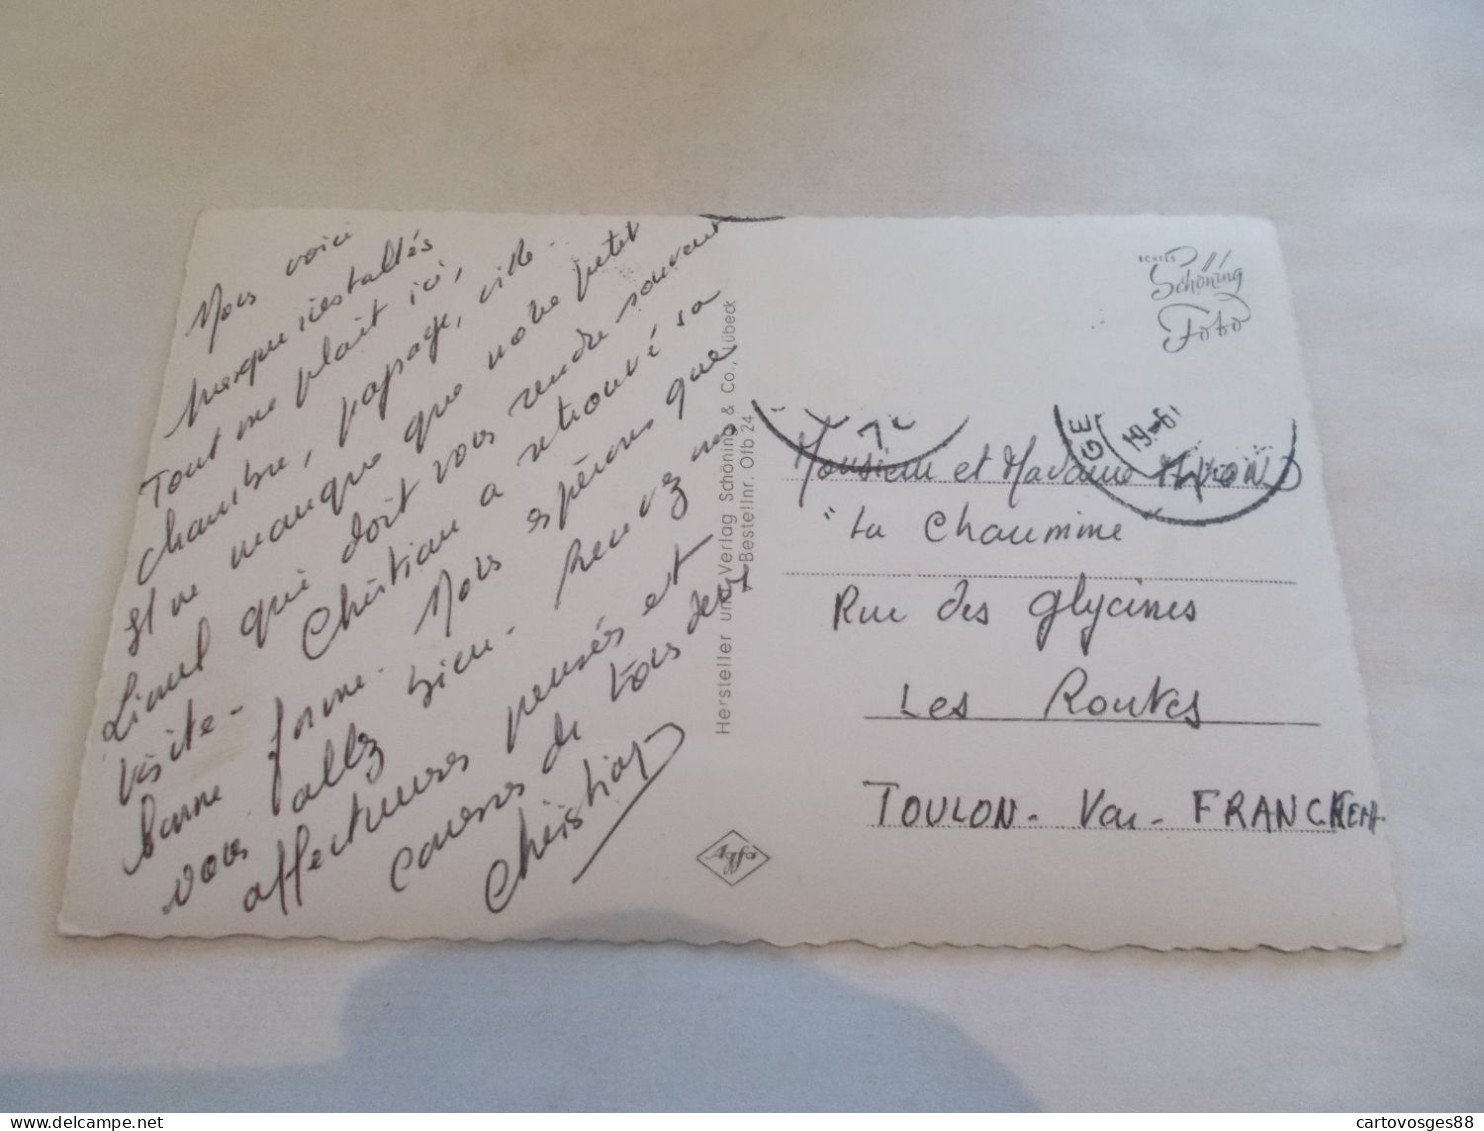 Nous voici
presque installés
Tout me plait ici,
chambre, paysage, ville.
Il ne manque que notre petit
Lionel qui doit vous rendre souvent
visite - Christian a retrouvé sa
bonne forme. Nous espérons que
vous allez bien - Recevez nos
affectueuses pensées et
caresses de tous deux
Christian
Hersteller und Verlag Schöning & Co., Lübeck
Bestellnr. Ofb 24
Agfa
ECHTES
Schöning
Foto
GE
19-6
Monsieur et Madame
"La Chaumine"
Rue des Glycines
Les Routes
TOULON - Var - FRANCKREICH
cartovosges88